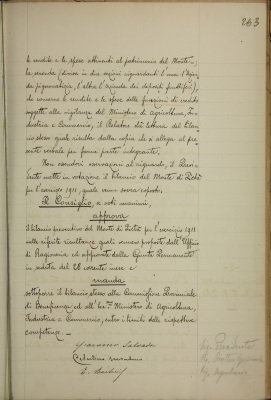 263
le rendite e le spese attinenti al patrimonio del Monte;
la seconda (divisa in due sezioni riguardanti l'una l'Azien
da pignoratizia, l'altra l'azienda dei depositi fruttiferi),
che concerne le rendite e le spese delle funzioni di credito
soggette alla vigilanza del Ministero di Agricoltura, In-
dustria e Commercio, il Relatore dà lettura del bilan-
cio stesso quale risulta dalla copia che si allega al pre-
sente verbale per farne parte integrante.
Non essendovi osservazioni al riguardo, il Presi-
dente mette in votazione il bilancio del Monte di Pietà
per l'esercizio 1911, quale venne sopra esposto.
Il Consiglio, a voti unanimi,
approva
il bilancio preventivo del Monte di Pietà per l'esercizio 1911
nelle cifre risultanze quali vennero proposte dall'Ufficio
di Ragioneria ed approvate dalla Giunta Permanente
in seduta del 28 corrente mese e
manda
sottoporre il bilancio stesso alla Commissione Provinciale
di Beneficenza ed all'Ecc.mo Ministero di Agricoltura,
Industria e Commercio, entro i limiti delle rispettive
competenze. -
Giacomo
Presidente